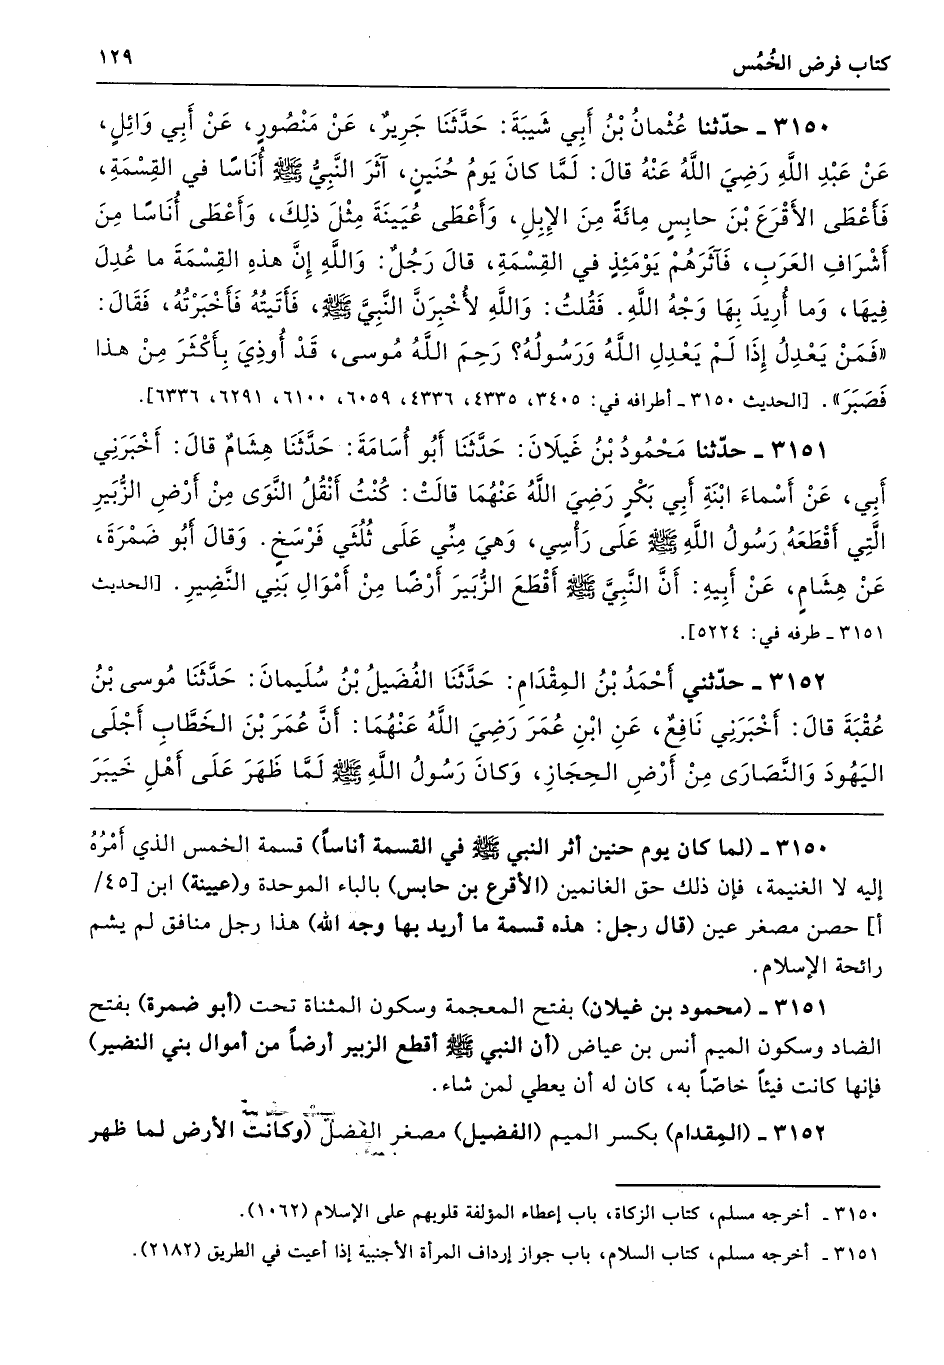 كتاب فرض الخُمُس ١٢٩
٣١٥٠ ـ حدّثنا عُثْمانُ بْنُ أَبِي شَيبَةَ: حَدَّثَنَا جَرِيرٌ، عَنْ مَنْصُورٍ، عَنْ أَبِي وَائِلٍ،
عَنْ عَبْدِ اللَّهِ رَضِيَ اللَّهُ عَنْهُ قالَ: لَمَّا كانَ يَوْمُ حُنَينٍ، آثَرَ النَّبِيُّ ﷺ أُنَاسًا في القِسْمَةِ،
فَأَعْطَى الأَقْرَعَ بْنَ حابِسٍ مِائَةً مِنَ الإِبِلِ، وَأَعْطَى عُيَينَةَ مِثْلَ ذلِكَ، وَأَعْطَى أُنَاسًا مِنَ
أَشْرَافِ العَرَبِ، فَآثَرَهُمْ يَوْمَئِذٍ في القِسْمَةِ، قالَ رَجُلٌ: وَاللَّهِ إِنَّ هذهِ القِسْمَةَ ما عُدِلَ
فِيهَا، وَما أُرِيدَ بِهَا وَجْهُ اللَّهِ. فَقُلتُ: وَاللَّهِ لأُخْبِرَنَّ النَّبِيَّ ﷺ، فَأَتَيتُهُ فَأَخْبَرْتُهُ، فَقَالَ:
«فَمَنْ يَعْدِلُ إِذَا لَمْ يَعْدِلِ اللَّهُ وَرَسُولُهُ؟ رَحِمَ اللَّهُ مُوسى، قَدْ أُوذِيَ بِأَكْثَرَ مِنْ هذا
فَصَبَرَ». [الحديث ٣١٥٠ ـ أطرافه في: ٣٤٠٥، ٤٣٣٥، ٤٣٣٦، ٦٠٥٩، ٦١٠٠، ٦٢٩١، ٦٣٣٦].
٣١٥١ ـ حدّثنا مَحْمُودُ بْنُ غَيلَانَ: حَدَّثَنَا أَبُو أُسَامَةَ: حَدَّثَنَا هِشَامٌ قالَ: أَخْبَرَنِي
أَبِي، عَنْ أَسْماءَ ابْنَةِ أَبِي بَكْرٍ رَضِيَ اللَّهُ عَنْهُمَا قالَتْ: كُنْتُ أَنْقُلُ النَّوَى مِنْ أَرْضِ الزُّبَيرِ
الَّتِي أَقْطَعَهُ رَسُولُ اللَّهِ ﷺ عَلَى رَأْسِي، وَهيَ مِنِّي عَلَى ثُلُثَي فَرْسَخٍ. وَقالَ أَبُو ضَمْرَةَ،
عَنْ هِشَامٍ، عَنْ أَبِيهِ: أَنَّ النَّبِيَّ ﷺ أَقْطَعَ الزُّبَيرَ أَرْضًا مِنْ أَمْوَالِ بَنِي النَّضِيرِ. [الحديث
٣١٥١ ـ طرفه في: ٥٢٢٤].
٣١٥٢ ـ حدّثني أَحْمَدُ بْنُ المِقْدَامِ: حَدَّثَنَا الفُضَيلُ بْنُ سُلَيمانَ: حَدَّثَنَا مُوسى بْنُ
عُقْبَةَ قالَ: أَخْبَرَنِي نَافِعٌ، عَنِ ابْنِ عُمَرَ رَضِيَ اللَّهُ عَنْهُمَا: أَنَّ عُمَرَ بْنَ الخَطَّابِ أَجْلَى
اليَهُودَ وَالنَّصَارَى مِنْ أَرْضِ الحِجَازِ، وَكانَ رَسُولُ اللَّهِ ﷺ لَمَّا ظَهَرَ عَلَى أَهْلِ خَيبَرَ
٣١٥٠ ـ (لما كان يوم حنين أثر النبي ﷺ في القسمة أناساً) قسمة الخمس الذي أَمْرُهُ
إليه لا الغنيمة، فإن ذلك حق الغانمين (الأقرع بن حابس) بالباء الموحدة و(عيينة) ابن [٤٥/
أ] حصن مصغر عين (قال رجل: هذه قسمة ما أريد بها وجه الله) هذا رجل منافق لم يشم
رائحة الإسلام.
٣١٥١ ـ (محمود بن غيلان) بفتح المعجمة وسكون المثناة تحت (أبو ضمرة) بفتح
الضاد وسكون الميم أنس بن عياض (أن النبي ﷺ أقطع الزبير أرضاً من أموال بني النضير)
فإنها كانت فيئاً خاصّاً به، كان له أن يعطي لمن شاء.
٣١٥٢ ـ (المِقدام) بكسر الميم (الفضيل) مصغر الفضل (وكانت الأرض لما ظهر
٣١٥٠ ـ أخرجه مسلم، كتاب الزكاة، باب إعطاء المؤلفة قلوبهم على الإسلام (١٠٦٢).
٣١٥١ ـ أخرجه مسلم، كتاب السلام، باب جواز إرداف المرأة الأجنبية إذا أعيت في الطريق (٢١٨٢).